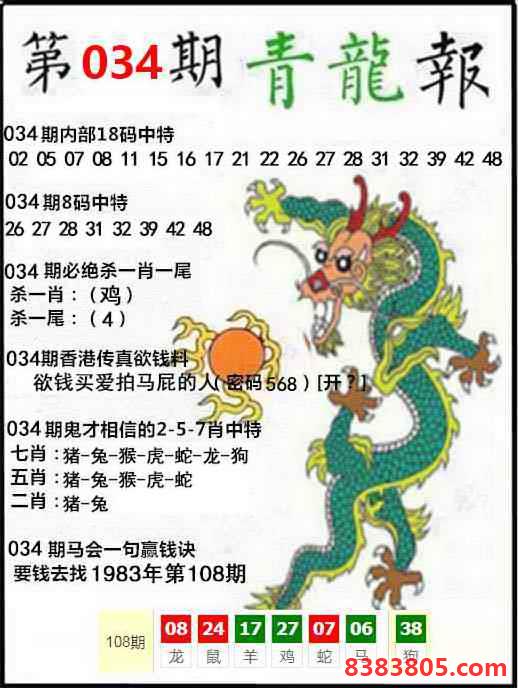 第034期 青龍報
034期内部18码中特
02 05 07 08 11 15 16 17 21 22 26 27 28 31 32 39 42 48
034期8码中特
26 27 28 31 32 39 42 48
034期必绝杀一肖一尾
杀一肖：（鸡）
杀一尾：（4）
034期香港传真欲钱料
欲钱买爱拍马屁的人(密码568) [开?]
034期鬼才相信的2-5-7肖中特
七肖：猪-兔-猴-虎-蛇-龙-狗
五肖：猪-兔-猴-虎-蛇
二肖：猪-兔
034期马会一句赢钱诀
要钱去找1983年第108期
108期 08 24 17 27 07 06 38
龙 鼠 羊 鸡 蛇 马 狗
8383805.com